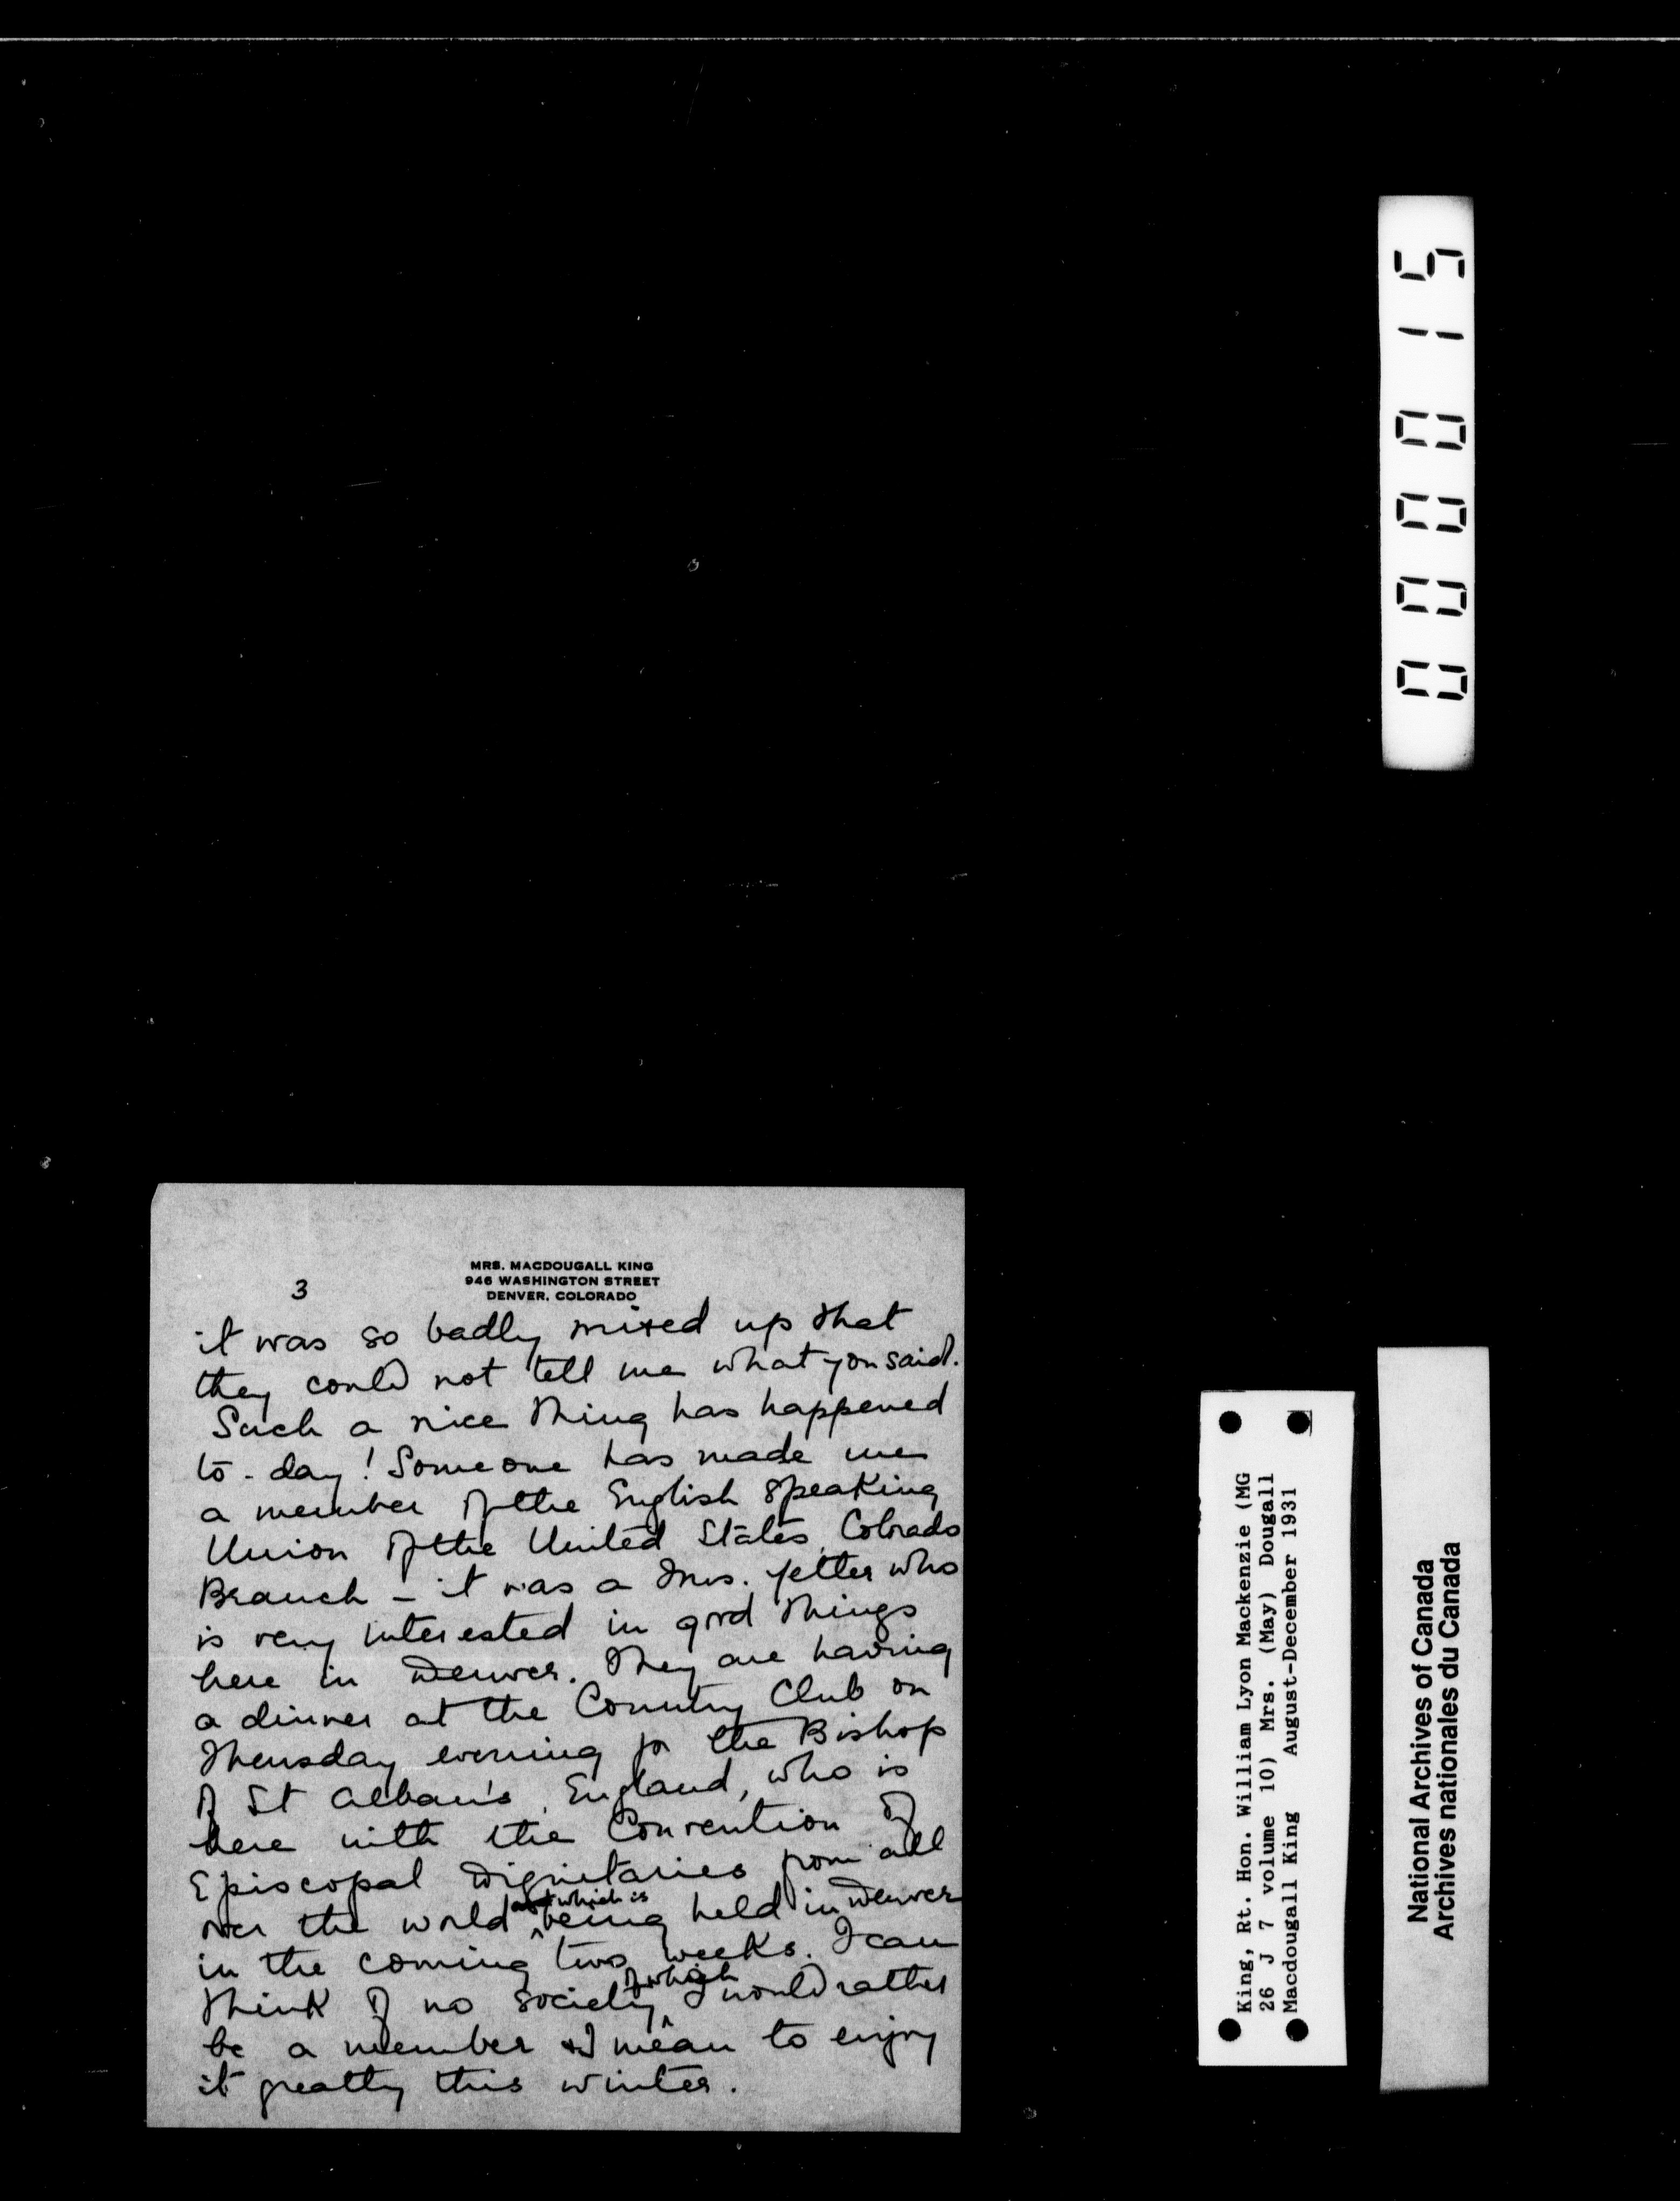 MRS. MACDOUGALL KING
946 WASHINGTON STREET
DENVER, COLORADO
3
it was so badly mixed up that
they could not tell me what you said.
Such a nice thing has happened
to-day! Someone has made me
a member of the English Speaking
Union of the United States, Colorado
Branch – it was a Mrs. Yetter who
is very interested in good things
here in Denver. They are having
a dinner at the Country Club on
Thursday evening for the Bishop
of St Alban's, England, who is
here with the Convention of
Episcopal Dignitaries from all
over the world which is being held in Denver
in the coming two weeks. I can
think of no society of which I would rather
be a member & I mean to enjoy
it greatly this winter.
000015
King, Rt. Hon. William Lyon Mackenzie (MG
26 J 7 volume 10) Mrs. (May) Dougall
Macdougall King August-December 1931
National Archives of Canada
Archives nationales du Canada